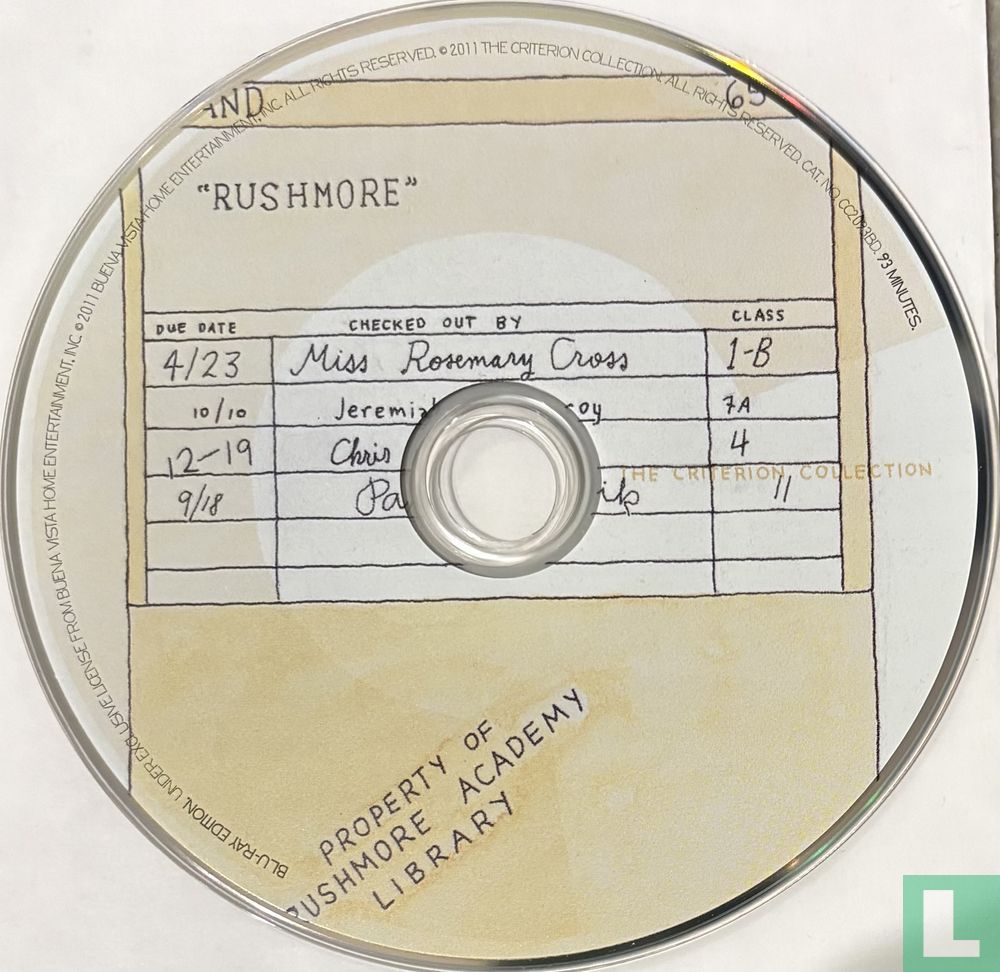 BLU-RAY EDITION. UNDER EXCLUSIVE LICENSE FROM BUENA VISTA HOME ENTERTAINMENT, INC. © 2011 BUENA VISTA HOME ENTERTAINMENT, INC. ALL RIGHTS RESERVED. © 2011 THE CRITERION COLLECTION. ALL RIGHTS RESERVED. CAT. NO. CC2093BD. 93 MINUTES.
AND 65
"RUSHMORE"
DUE DATE CHECKED OUT BY CLASS
4/23 Miss Rosemary Cross 1-B
10/10 Jeremi oy 7A
12-19 Chris 4
THE CRITERION COLLECTION
9/18 Pa ik 11
PROPERTY OF
RUSHMORE ACADEMY
LIBRARY
L